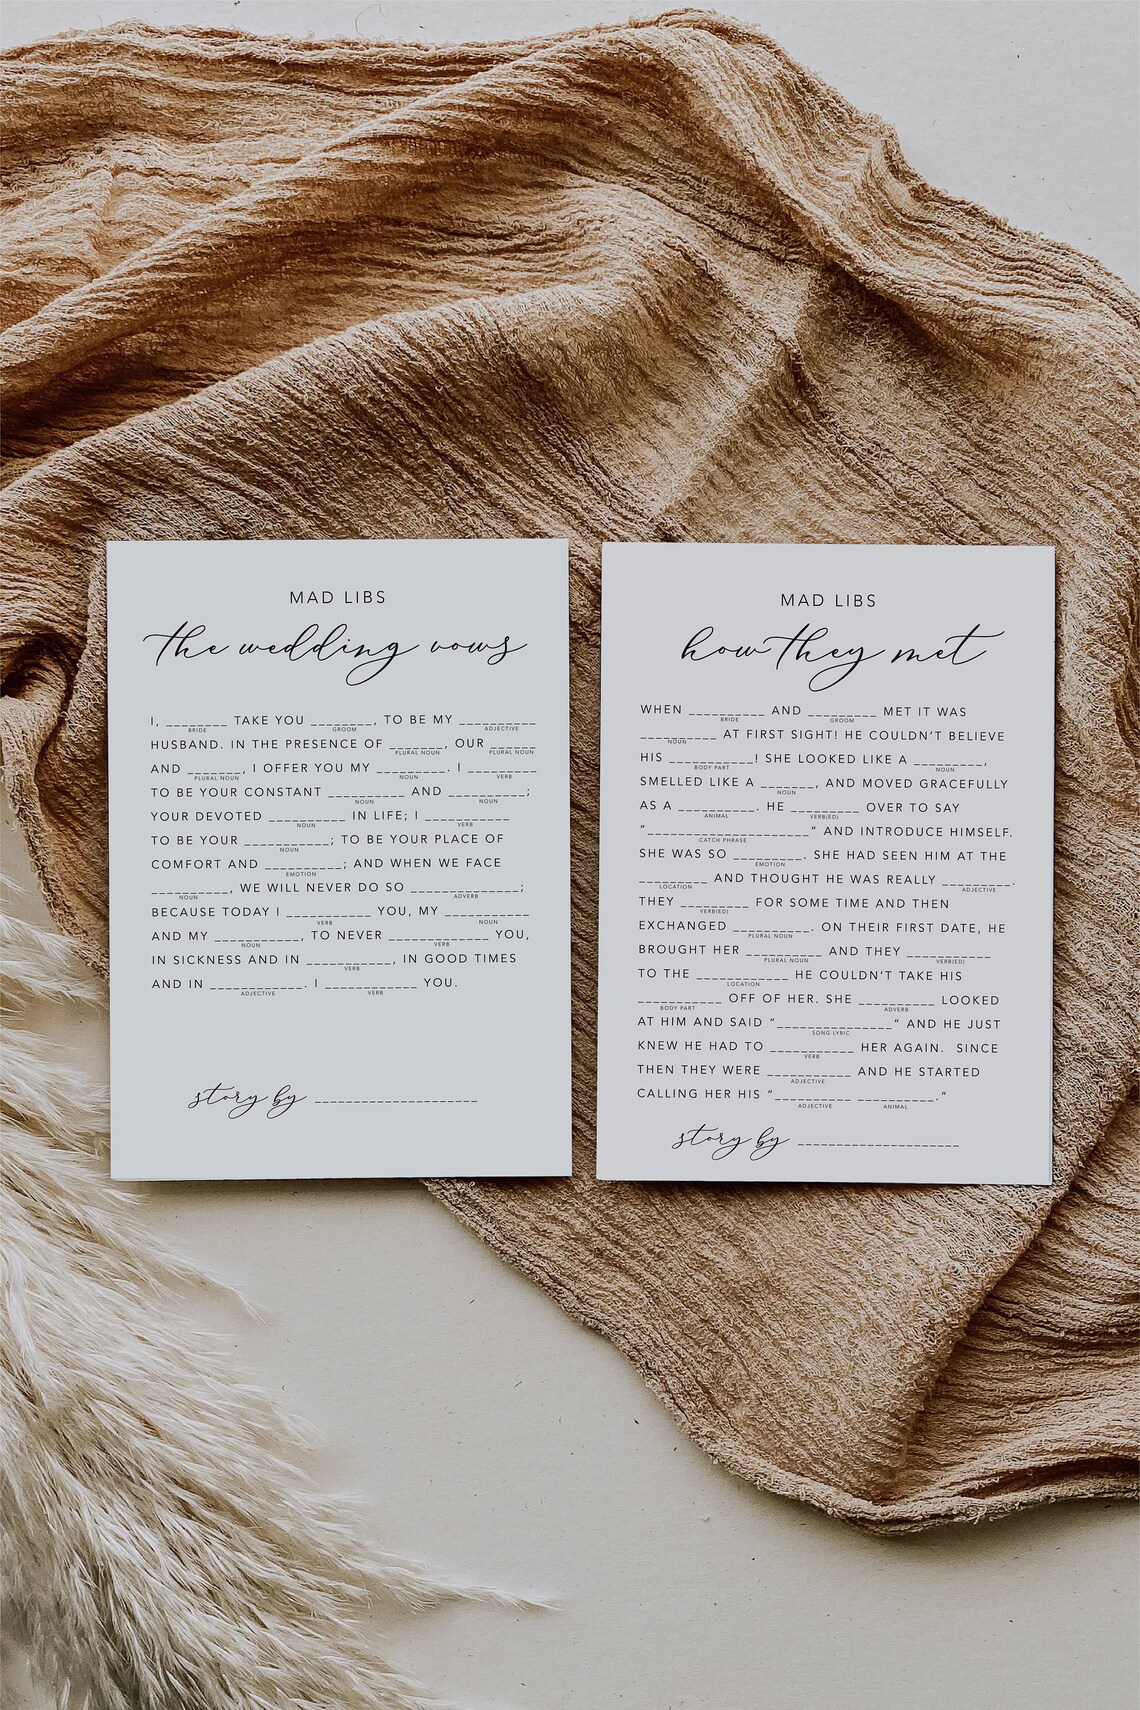 MAD LIBS
the wedding vows
I, ________ TAKE YOU ________, TO BE MY __________
BRIDE GROOM ADJECTIVE
HUSBAND. IN THE PRESENCE OF _______, OUR ______
PLURAL NOUN PLURAL NOUN
AND _______, I OFFER YOU MY _________. I _________
PLURAL NOUN NOUN VERB
TO BE YOUR CONSTANT __________ AND __________;
NOUN NOUN
YOUR DEVOTED __________ IN LIFE; I ___________
NOUN VERB
TO BE YOUR ___________; TO BE YOUR PLACE OF
NOUN
COMFORT AND __________; AND WHEN WE FACE
EMOTION
__________, WE WILL NEVER DO SO ______________;
NOUN ADVERB
BECAUSE TODAY I ___________ YOU, MY ___________
VERB NOUN
AND MY ___________, TO NEVER _____________ YOU,
NOUN VERB
IN SICKNESS AND IN ___________, IN GOOD TIMES
VERB
AND IN ____________. I ____________ YOU.
ADJECTIVE VERB
story by _____________________
MAD LIBS
how they met
WHEN __________ AND _________ MET IT WAS
BRIDE GROOM
__________ AT FIRST SIGHT! HE COULDN'T BELIEVE
NOUN
HIS ___________! SHE LOOKED LIKE A _________,
BODY PART NOUN
SMELLED LIKE A _______, AND MOVED GRACEFULLY
NOUN
AS A __________. HE _________ OVER TO SAY
ANIMAL VERB(ED)
"_____________________" AND INTRODUCE HIMSELF.
CATCH PHRASE
SHE WAS SO _________. SHE HAD SEEN HIM AT THE
EMOTION
_________ AND THOUGHT HE WAS REALLY _________.
LOCATION ADJECTIVE
THEY _________ FOR SOME TIME AND THEN
VERB(ED)
EXCHANGED __________. ON THEIR FIRST DATE, HE
PLURAL NOUN
BROUGHT HER __________ AND THEY ___________
PLURAL NOUN VERB(ED)
TO THE ____________ HE COULDN'T TAKE HIS
LOCATION
___________ OFF OF HER. SHE __________ LOOKED
BODY PART ADVERB
AT HIM AND SAID "_______________" AND HE JUST
SONG LYRIC
KNEW HE HAD TO ___________ HER AGAIN. SINCE
VERB
THEN THEY WERE ___________ AND HE STARTED
ADJECTIVE
CALLING HER HIS "__________ __________."
ADJECTIVE ANIMAL
story by _____________________